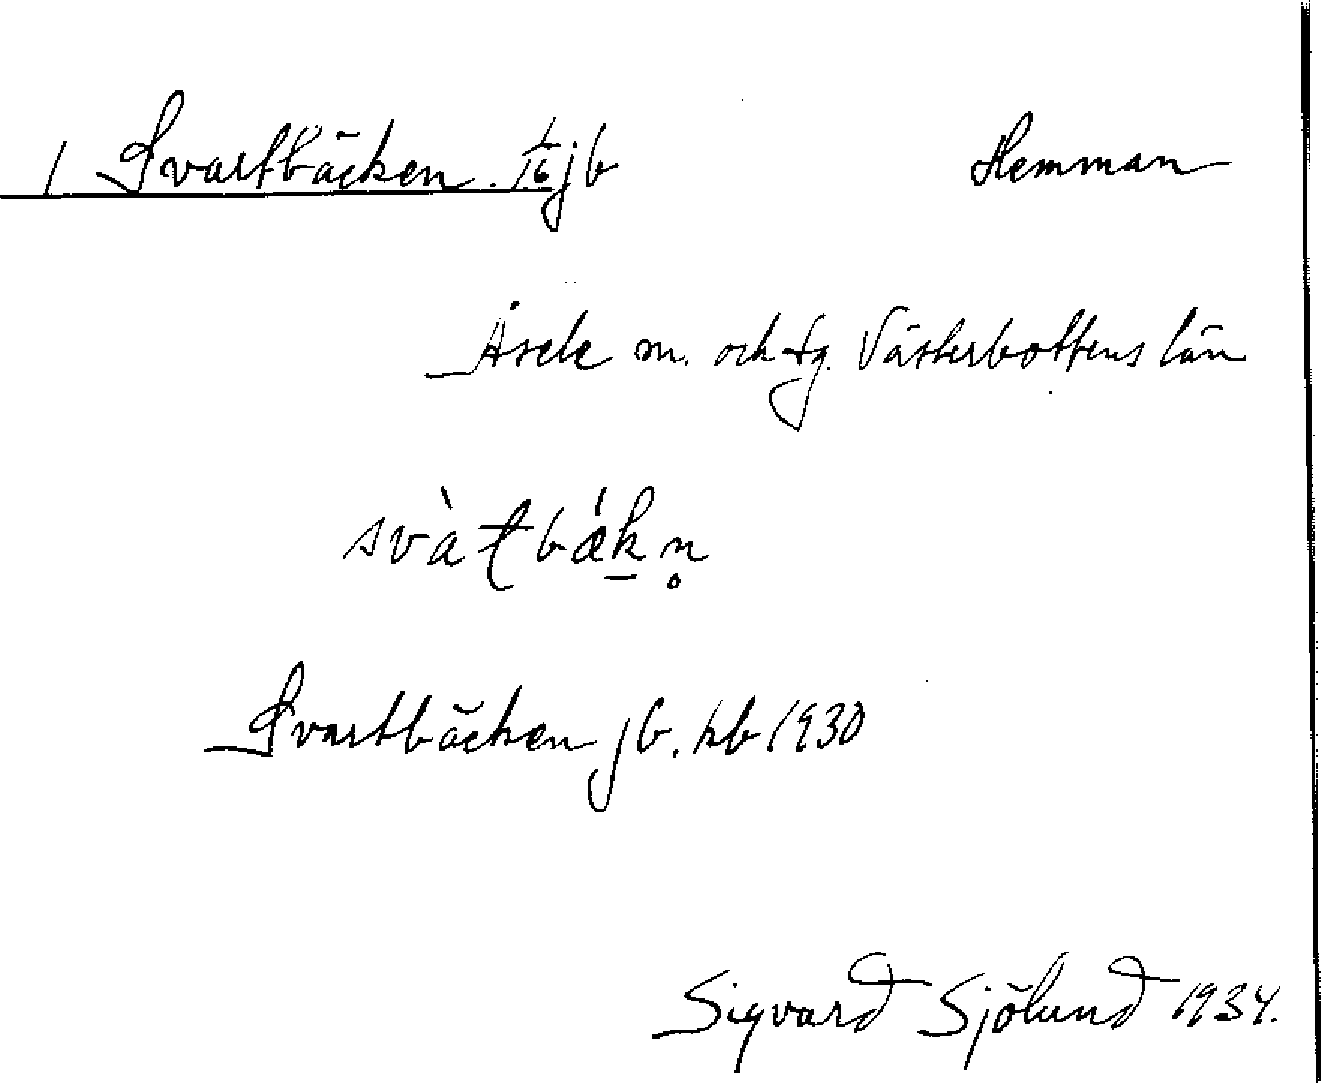 1 Svartbäcken. 1/16 jb Hemman
Åsele sn. och tg. Västerbottens län
svàʈbǽk̲n̥
Svartbäcken jb. kb 1930
Sigvard Sjölund 1934.